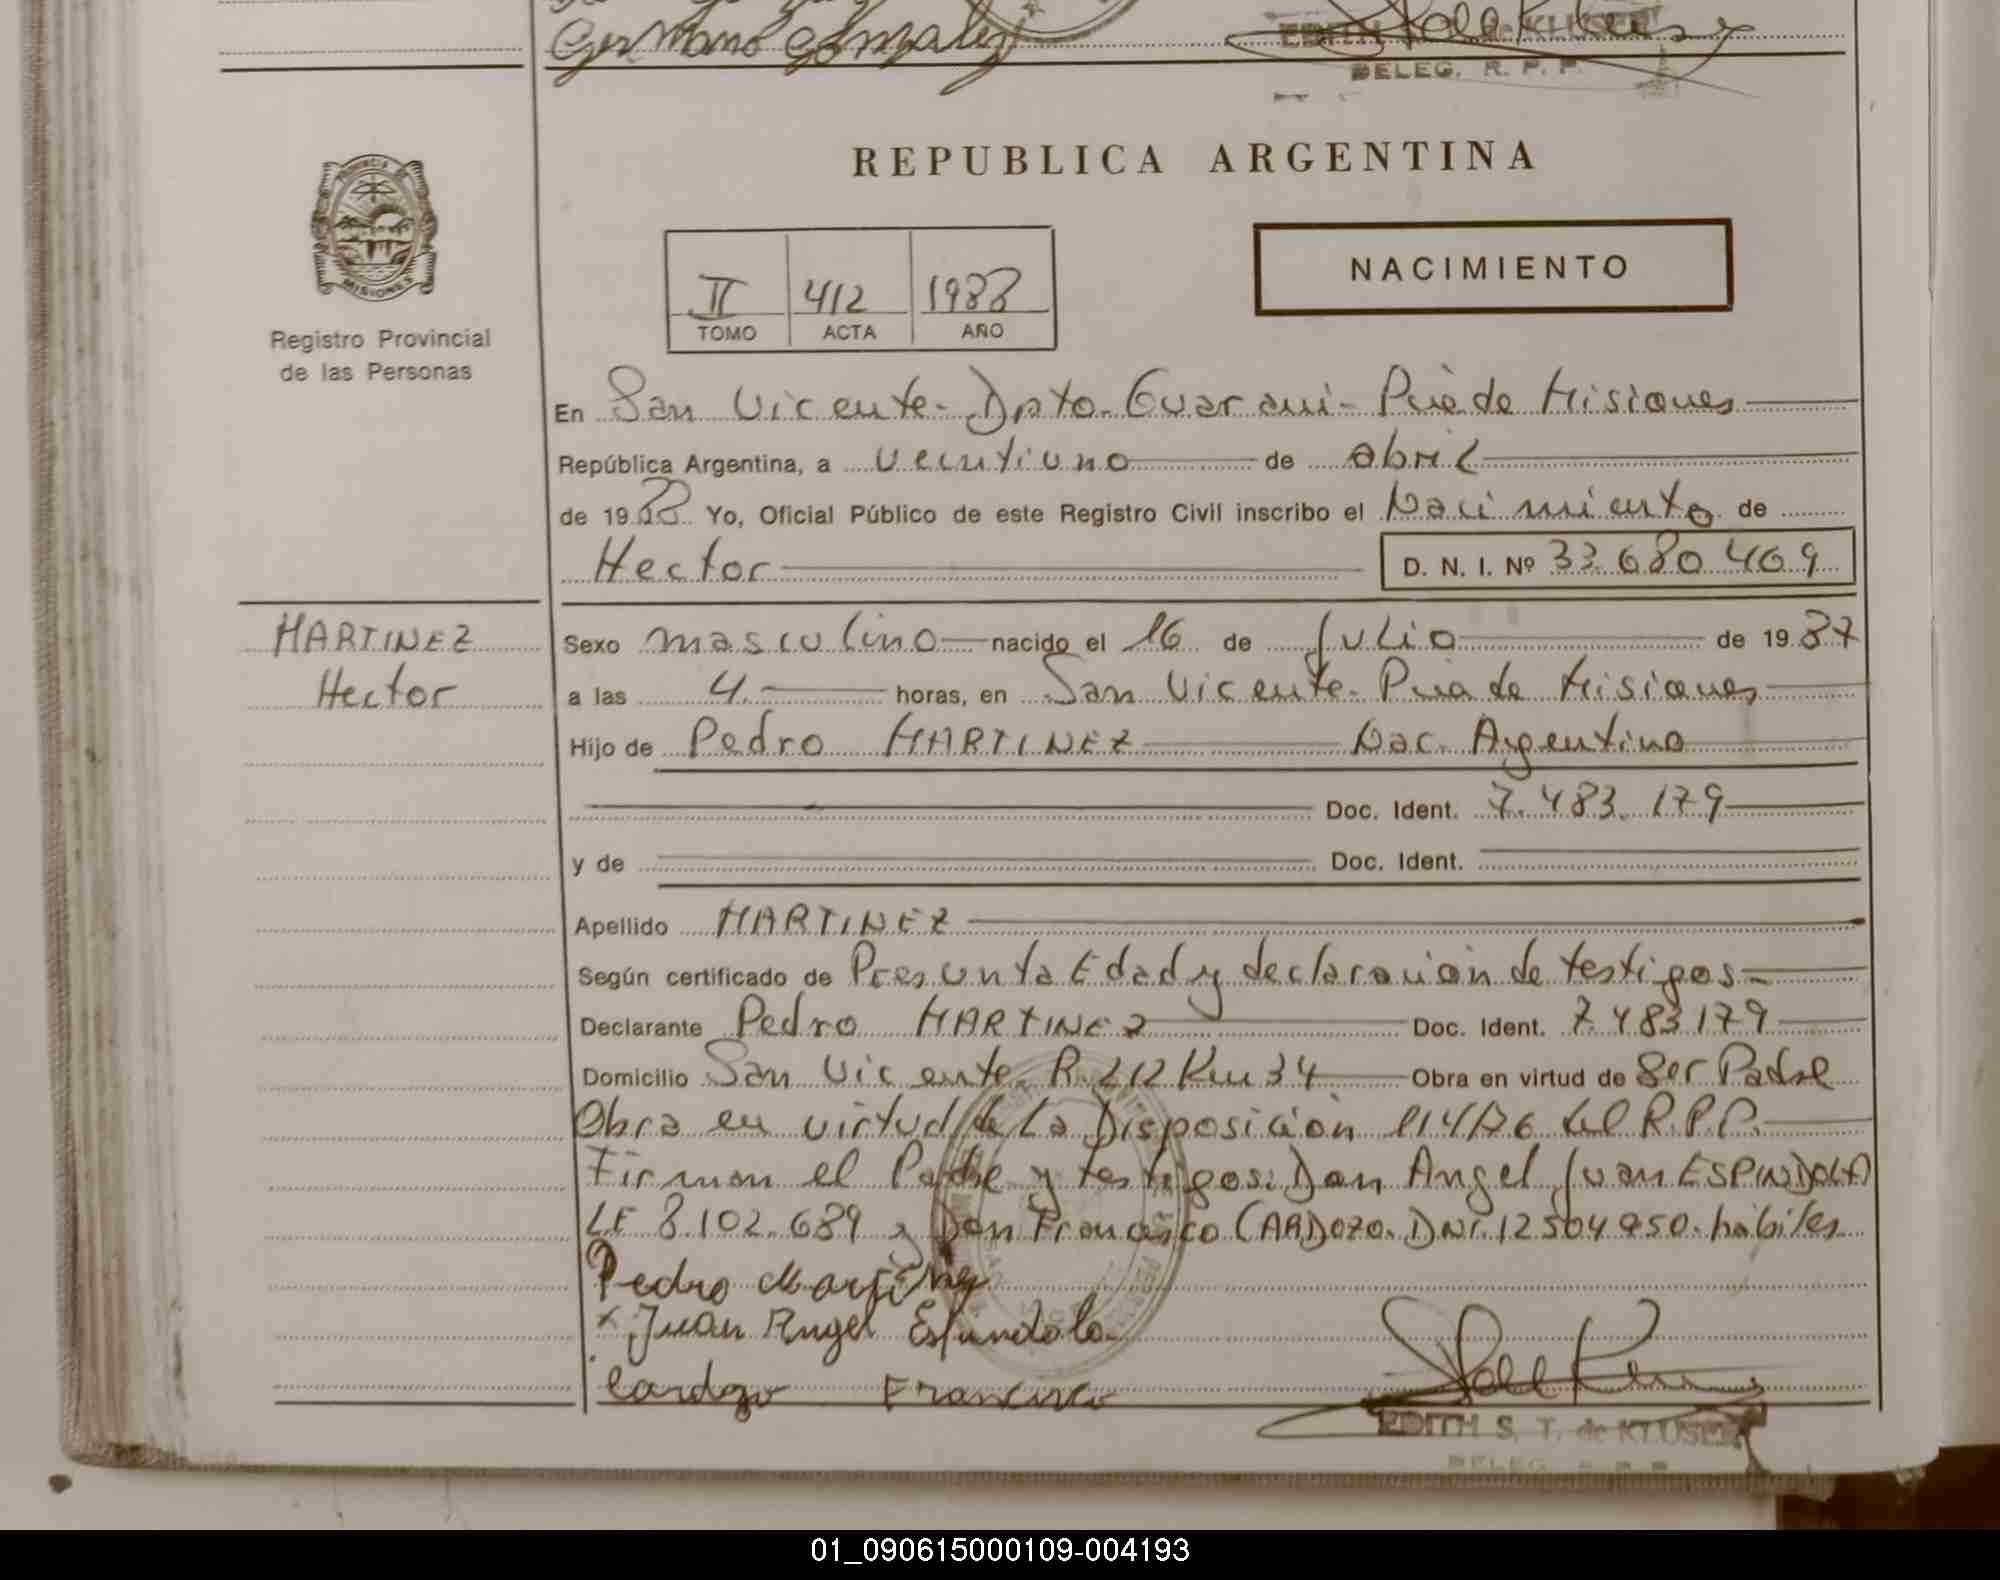 Germano Gomalez
DELEG. R. P. P.
REPUBLICA ARGENTINA
PROVINCIA DE
MISIONES
Registro Provincial
de las Personas
II 412 1988
TOMO ACTA AÑO
NACIMIENTO
En San Vicente - Dpto. Guarani - Pcia de Misiones
República Argentina, a veintiuno de abril
de 1988 Yo, Oficial Público de este Registro Civil inscribo el Nacimiento de
Hector D. N. I. Nº 33.680.469
MARTINEZ
Hector
Sexo masculino nacido el 16 de Julio de 1987
a las 4. horas, en San Vicente - Pcia de Misiones
Hijo de Pedro MARTINEZ Nac. Argentino
Doc. Ident. 7.483.179
y de Doc. Ident.
Apellido MARTINEZ
Según certificado de Presunta Edad y declaración de testigos
Declarante Pedro MARTINEZ Doc. Ident. 7.483.179
Domicilio San Vicente R. 212 Km 34 Obra en virtud de Ser Padre
Obra en virtud de la Disposición 114/76 del R.P.P.
Firman el Padre y testigos: Don Angel Juan ESPINDOLA
LE 8.102.689 y Don Francisco CARDOZO. DNI. 12.504.950. hábiles
Pedro Martinez
x Juan Angel Espindola
Cardozo Francisco
EDITH S. T. de KLUSER
DELEG. R. P. P.
01_090615000109-004193